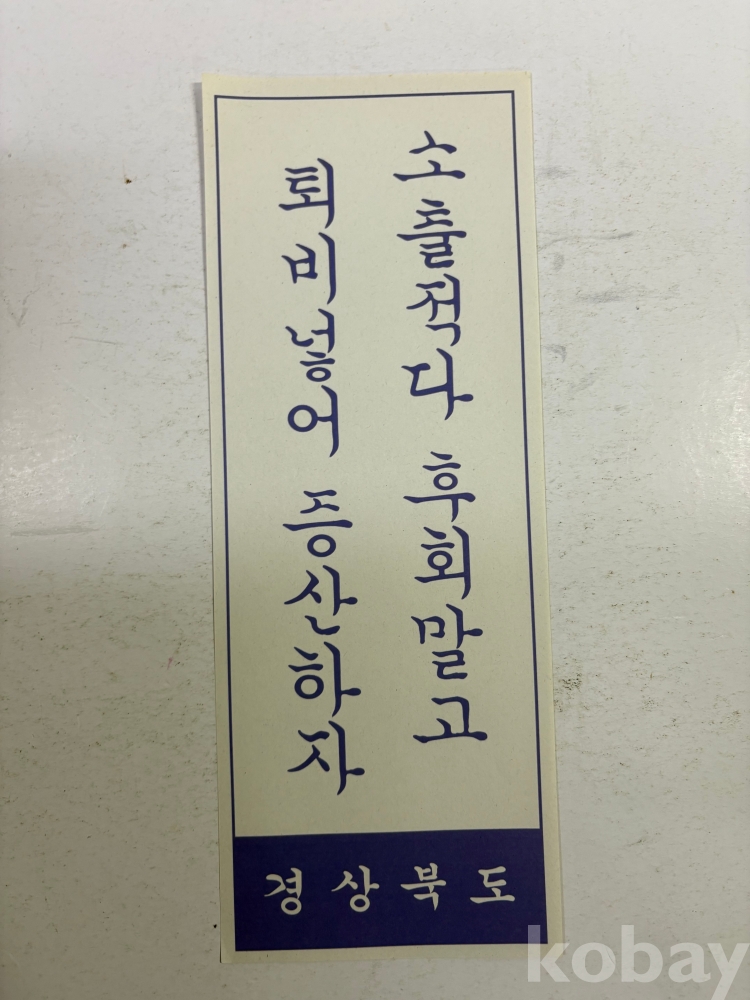 소출적다 후회말고
퇴비넣어 증산하자
경상북도
kobay